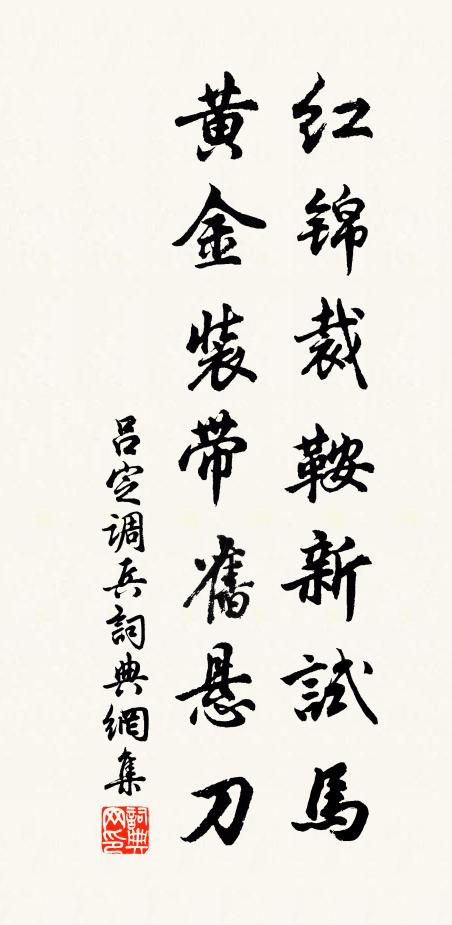 红锦裁鞍新試馬
黄金裝带舊悬刀
吕定调兵詞典網集
詞典网印